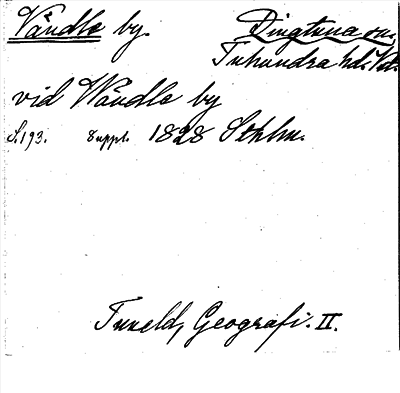 Våndle by. Dingtuna sn,
Tuhundra hd. Vstm.
vid Wåndle by
S. 193. Suppl. 1828 Sthlm.
Tuneld, Geografi. II.